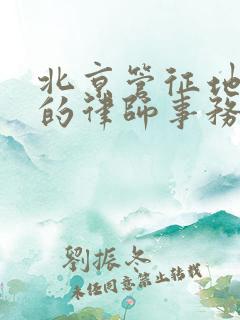 北京管征地
的律師事務
劉振冬
未经同意禁止转载